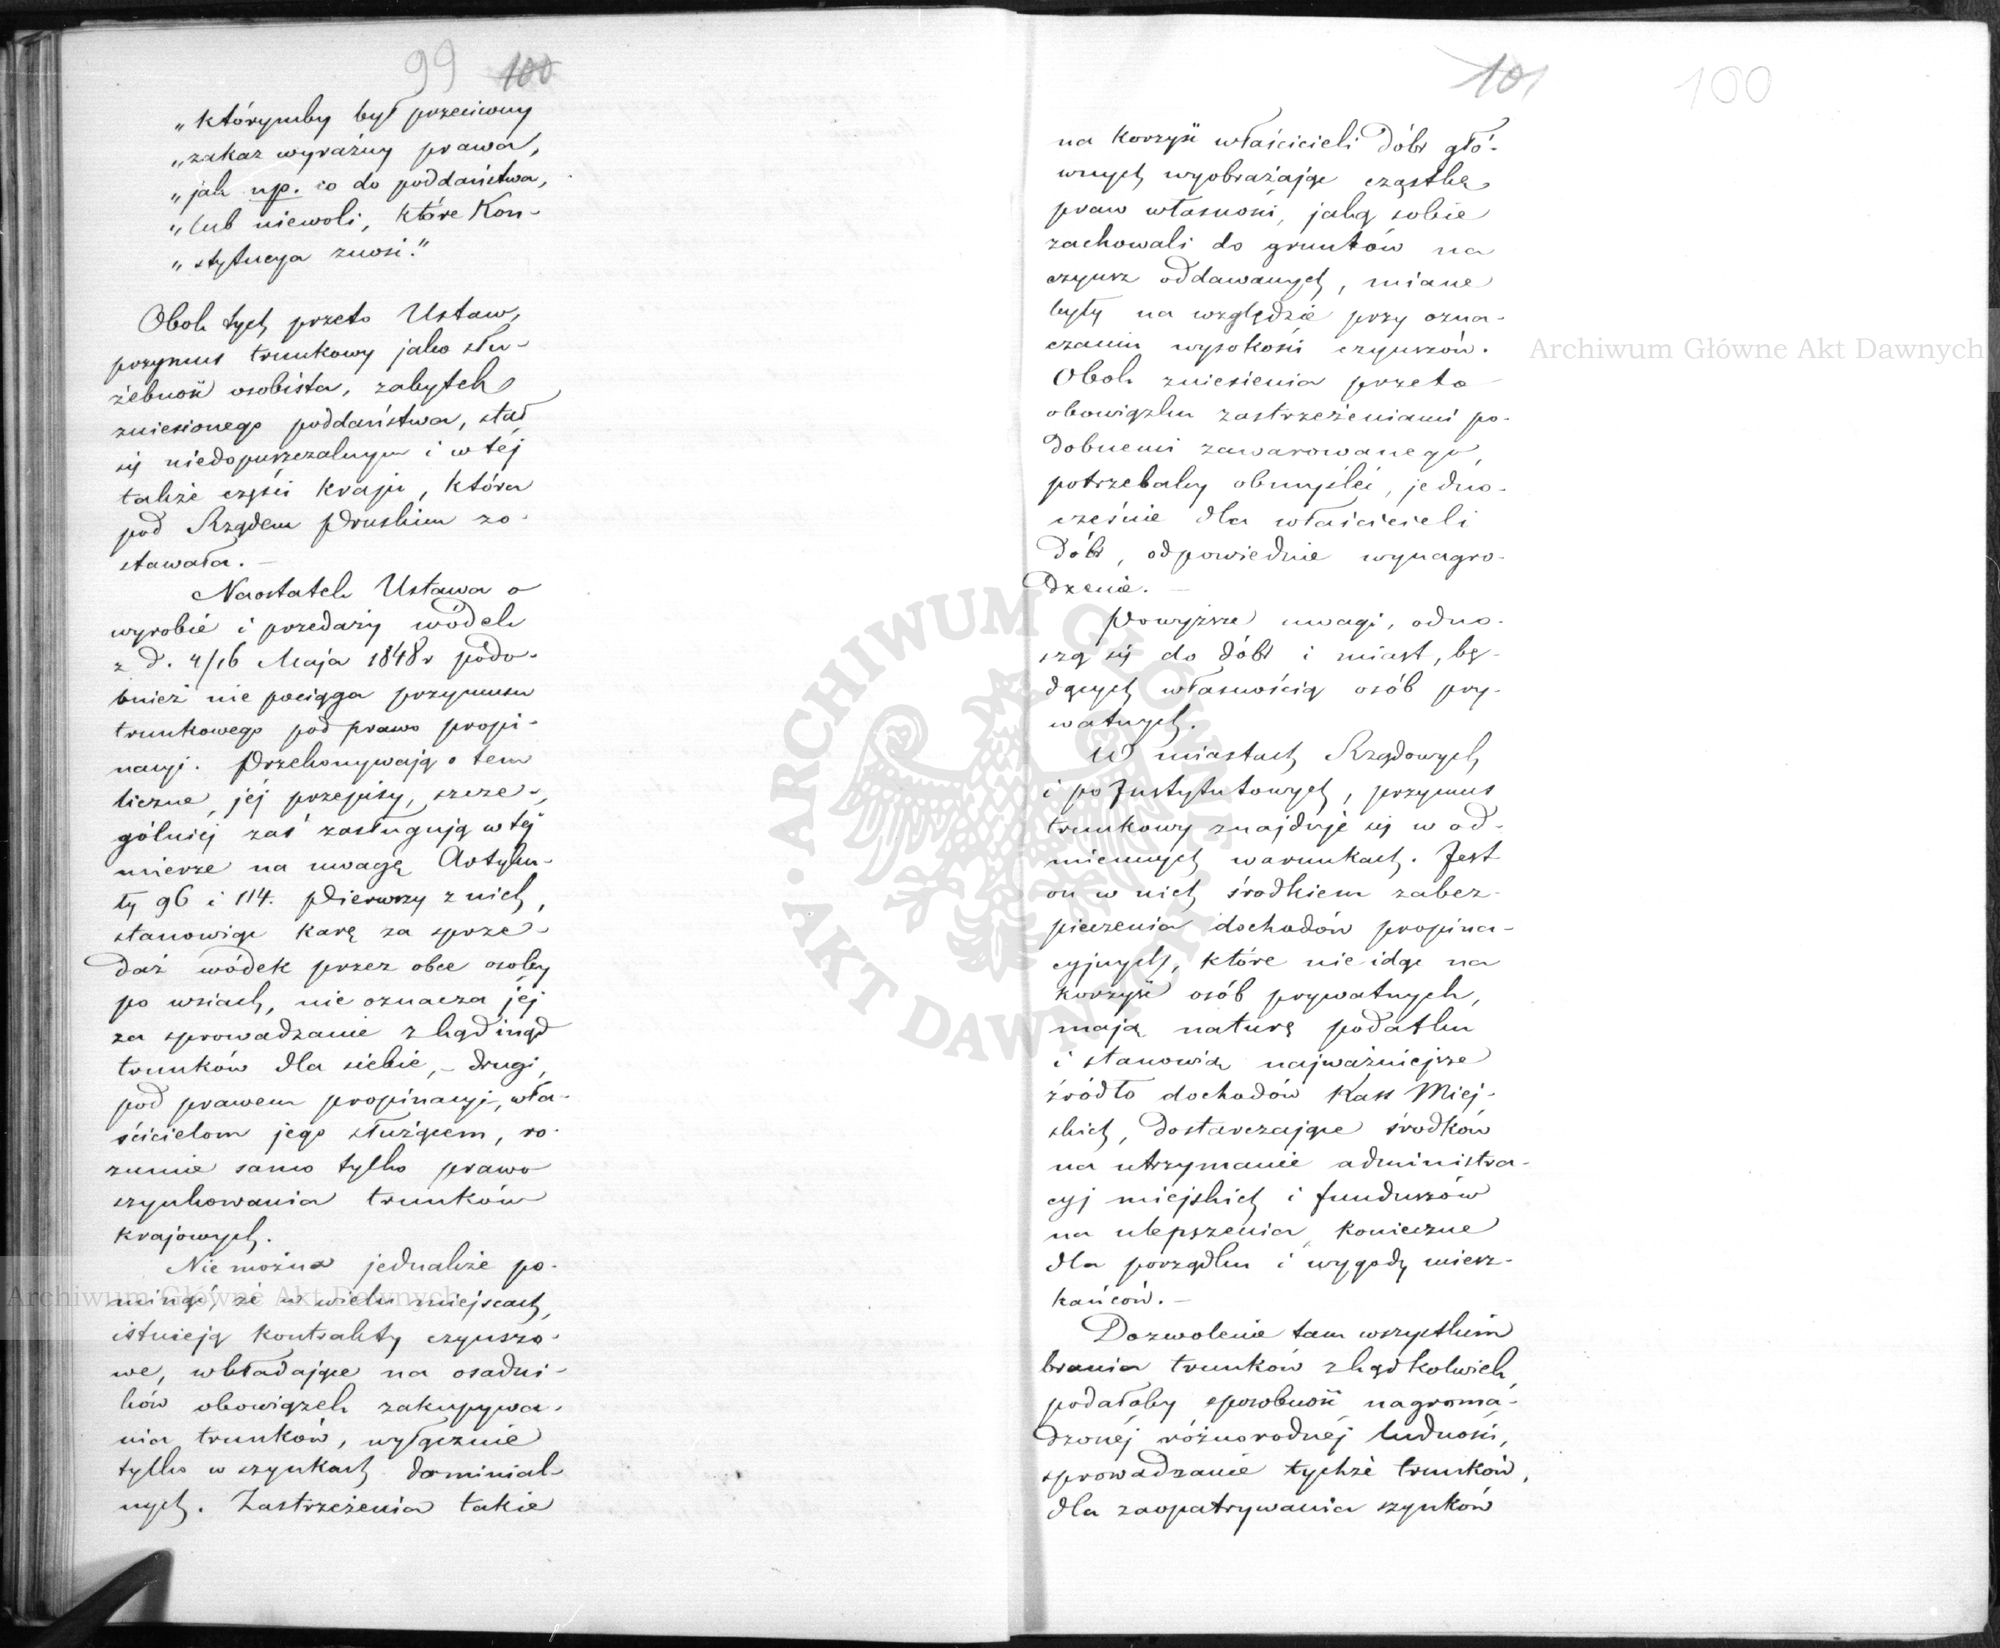 99 100
„którymby był przeciwny
„zakaz wyraźny prawa,
„jak np. co do poddaństwa,
„lub niewoli, które Kon-
„stytucya znosi."
Obok tych przeto Ustaw,
przymus trunkowy jako słu-
żebność osobista, zabytek
zniesionego poddaństwa, stał
się niedopuszczalnym i w téj
także części kraju, która
pod Rządem Pruskim zo-
stawała. —
Naostatek Ustawa o
wyrobie i przedaży wódek
z d. 4/16 Maja 1848 r podo-
bnież nie pociąga przymusu
trunkowego pod prawo propi-
nacyi. Przekonywają o tem
liczne jéj przepisy, szcze-
gólniej zaś zasługują w téj
mierze na uwagę Artyku-
ły 96 i 114. Pierwszy z nich,
stanowiąc karę za sprze-
daż wódek przez obce osoby
po wsiach, nie oznacza jéj
za sprowadzanie zkądinąd
trunków dla siebie, – drugi,
pod prawem propinacyi, wła-
ścicielom jego służącem, ro-
zumie samo tylko prawo
szynkowania trunków
krajowych.
Nie można jednakże po-
minąć, że w wielu miejscach,
istnieją kontrakty czynszo-
we, wkładające na osadni-
ków obowiązek zakupywa-
nia trunków, wyłącznie
tylko w szynkach dominial-
nych. Zastrzeżenia takie
101 100
na korzyść właścicieli dóbr głó-
wnych wyobrażając cząstkę
praw własności, jaką sobie
zachowali do gruntów na
czynsz oddawanych, miane
były na względzie przy ozna-
czaniu wysokości czynszów.
Obok zniesienia przeto
obowiązku zastrzeżeniami po-
dobnemi zawarowanego,
potrzebaby obmyśleć, jedno-
cześnie dla właścicieli
dóbr, odpowiednie wynagro-
dzenie. —
Powyższe uwagi, odno-
szą się do dóbr i miast, bę-
dących własnością osób pry-
watnych.
W miastach Rządowych
i po Instytutowych, przymus
trunkowy znajduje się w od-
miennych warunkach. Jest
on w nich środkiem zabez-
pieczenia dochodów propina-
cyjnych, które nie idąc na
korzyść osób prywatnych,
mają naturę podatku
i stanowią najważniejsze
źródło dochodów Kass Miej-
skich, dostarczające środków
na utrzymanie administra-
cyj miejskich i funduszów
na ulepszenia konieczne
dla porządku i wygody miesz-
kańców. —
Dozwolenie tam wszystkim
brania trunków zkądkolwiek,
podałoby sposobność nagroma-
dzonéj różnorodnéj ludności,
sprowadzanie tychże trunków,
dla zaopatrywania szynków
Archiwum Główne Akt Dawnych
Archiwum Główne Akt Dawnych
ARCHIWUM GŁÓWNE AKT DAWNYCH